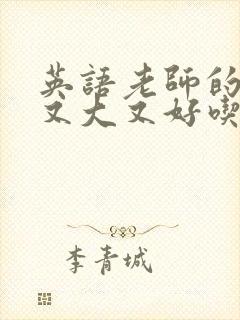 英語老師的
又大又好喫
李青城